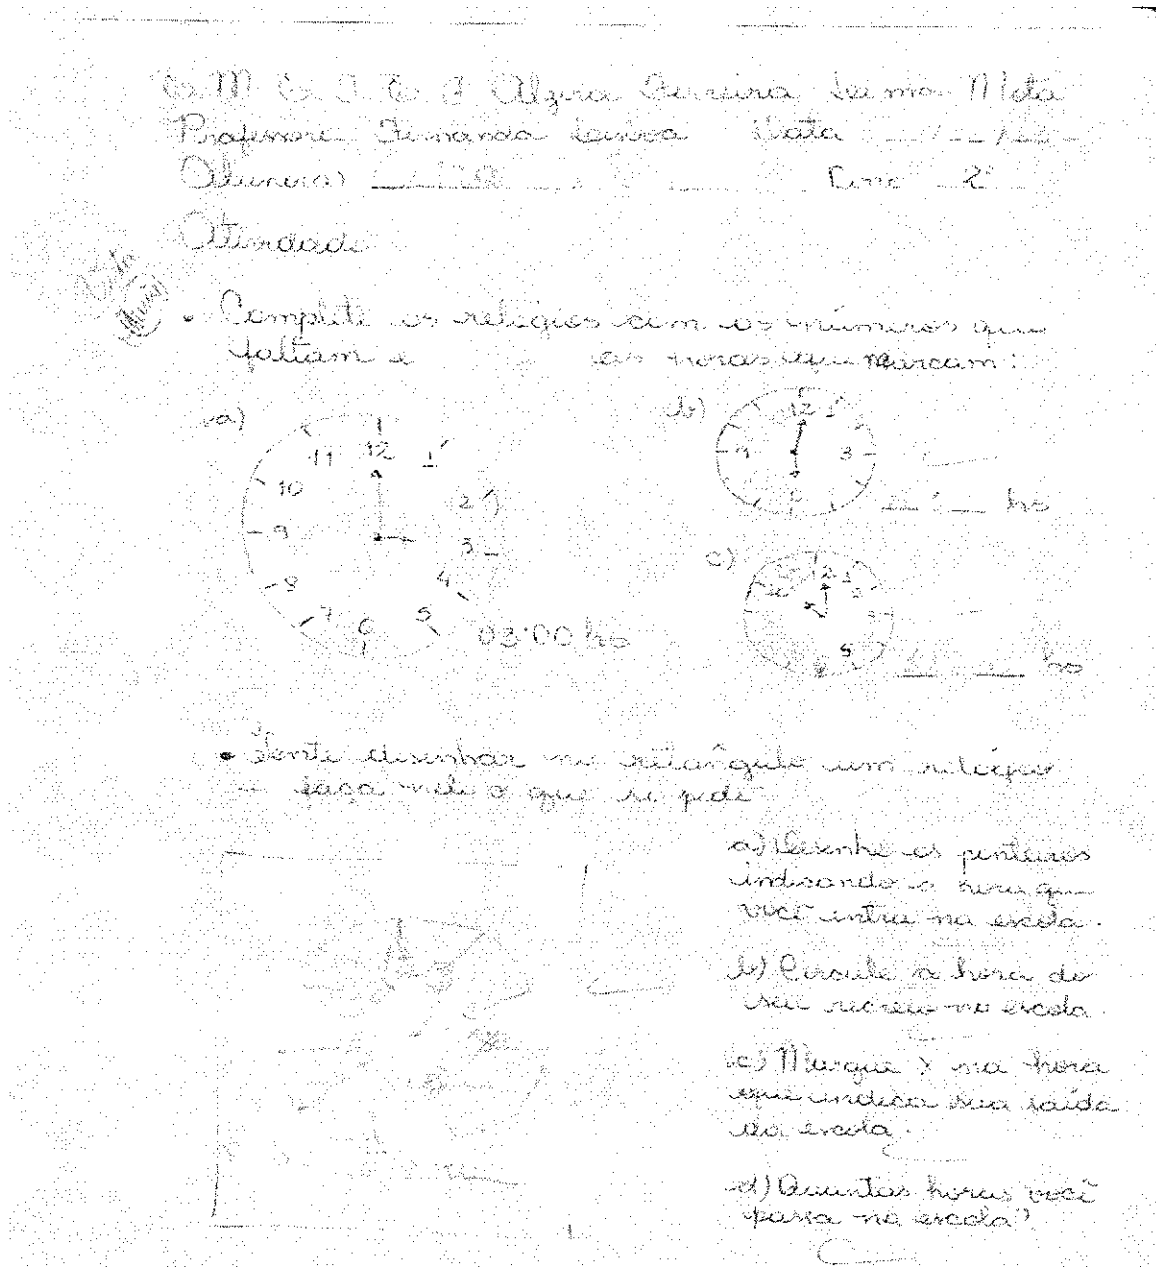 E. M. E. I. E. F. Alzira Ferreira Leima Mota
Professora Fernanda Data __/__/__
Aluno(a) 2º
Atividade
• Complete os relógios com os números que
faltam e as horas que marcam:
a)
11 12 1
10 2
9 3
8 4
7 6 5
03:00 hs
b)
12 1
9 3
__:__ hs
c)
12 1
2
3
5
__:__ hs
• Tente desenhar no retângulo um relógio
faça nele o que se pede
a) Desenhe os ponteiros
indicando a hora que
você entra na escola.
b) Circule a hora do
seu recreio na escola.
c) Marque X na hora
que indica sua saída
da escola.
d) Quantas horas você
passa na escola?